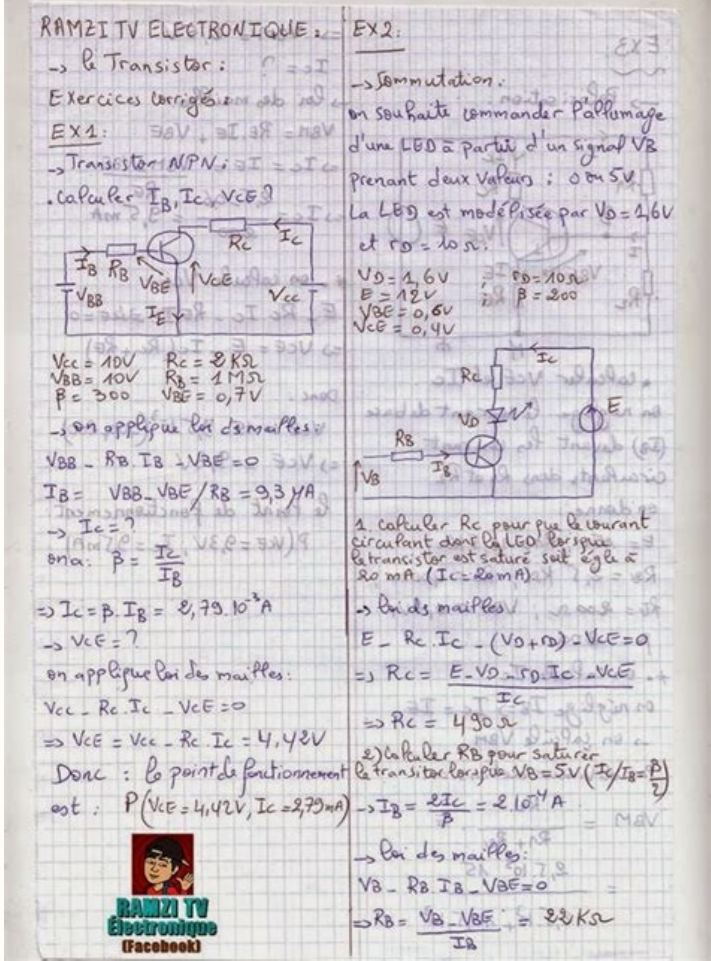 RAMZI TV ELECTRONIQUE:
-> le Transistor:
Exercices corrigés:
EX1:
-> Transistor NPN:
. Calculer IB, Ic, VCE?
Rc
Ic
IB
RB
VBE
VCE
VBB
IE
Vcc
Vcc = 10V Rc = 2 KΩ
VBB = 10V RB = 1 MΩ
β = 300 VBE = 0,7V
-> on applique loi ds mailles:
VBB - RB.IB - VBE = 0
IB = VBB - VBE / RB = 9,3 µA
-> Ic = ?
on a: β = Ic/IB
=> Ic = β.IB = 2,79.10⁻³A
-> VCE = ?
on applique loi des mailles:
Vcc - Rc.Ic - VCE = 0
=> VCE = Vcc - Rc.Ic = 4,42V
Donc : le point de fonctionnement
est : P(VCE = 4,42V, Ic = 2,79mA)
RAMZI TV
Électronique
(Facebook)
EX2:
-> Commutation:
on souhaite commander l'allumage
d'une LED à partir d'un signal VB
prenant deux valeurs : 0 ou 5V
La LED est modélisée par VD = 1,6V
et rD = 10Ω.
VD = 1,6V ; rD = 10Ω
E = 12V ; β = 200
VBE = 0,6V
VCE = 0,4V
Ic
Rc
VD
E
RB
IB
VB
1. calculer Rc pour que le courant
circulant dans la LED lorsque
le transistor est saturé soit égle à
20 mA. (Ic = 20mA)
-> loi ds mailles
E - Rc.Ic - (VD + rD) - VCE = 0
=> Rc = E - VD - rD.Ic - VCE / Ic
=> Rc = 490Ω
2) Calculer RB pour saturer
le transitor lorsque VB = 5V (Ic/IB = β/2)
-> IB = 2Ic/β = 2.10⁻⁴A
-> loi des mailles:
VB - RB.IB - VBE = 0
=> RB = VB - VBE / IB = 22 KΩ